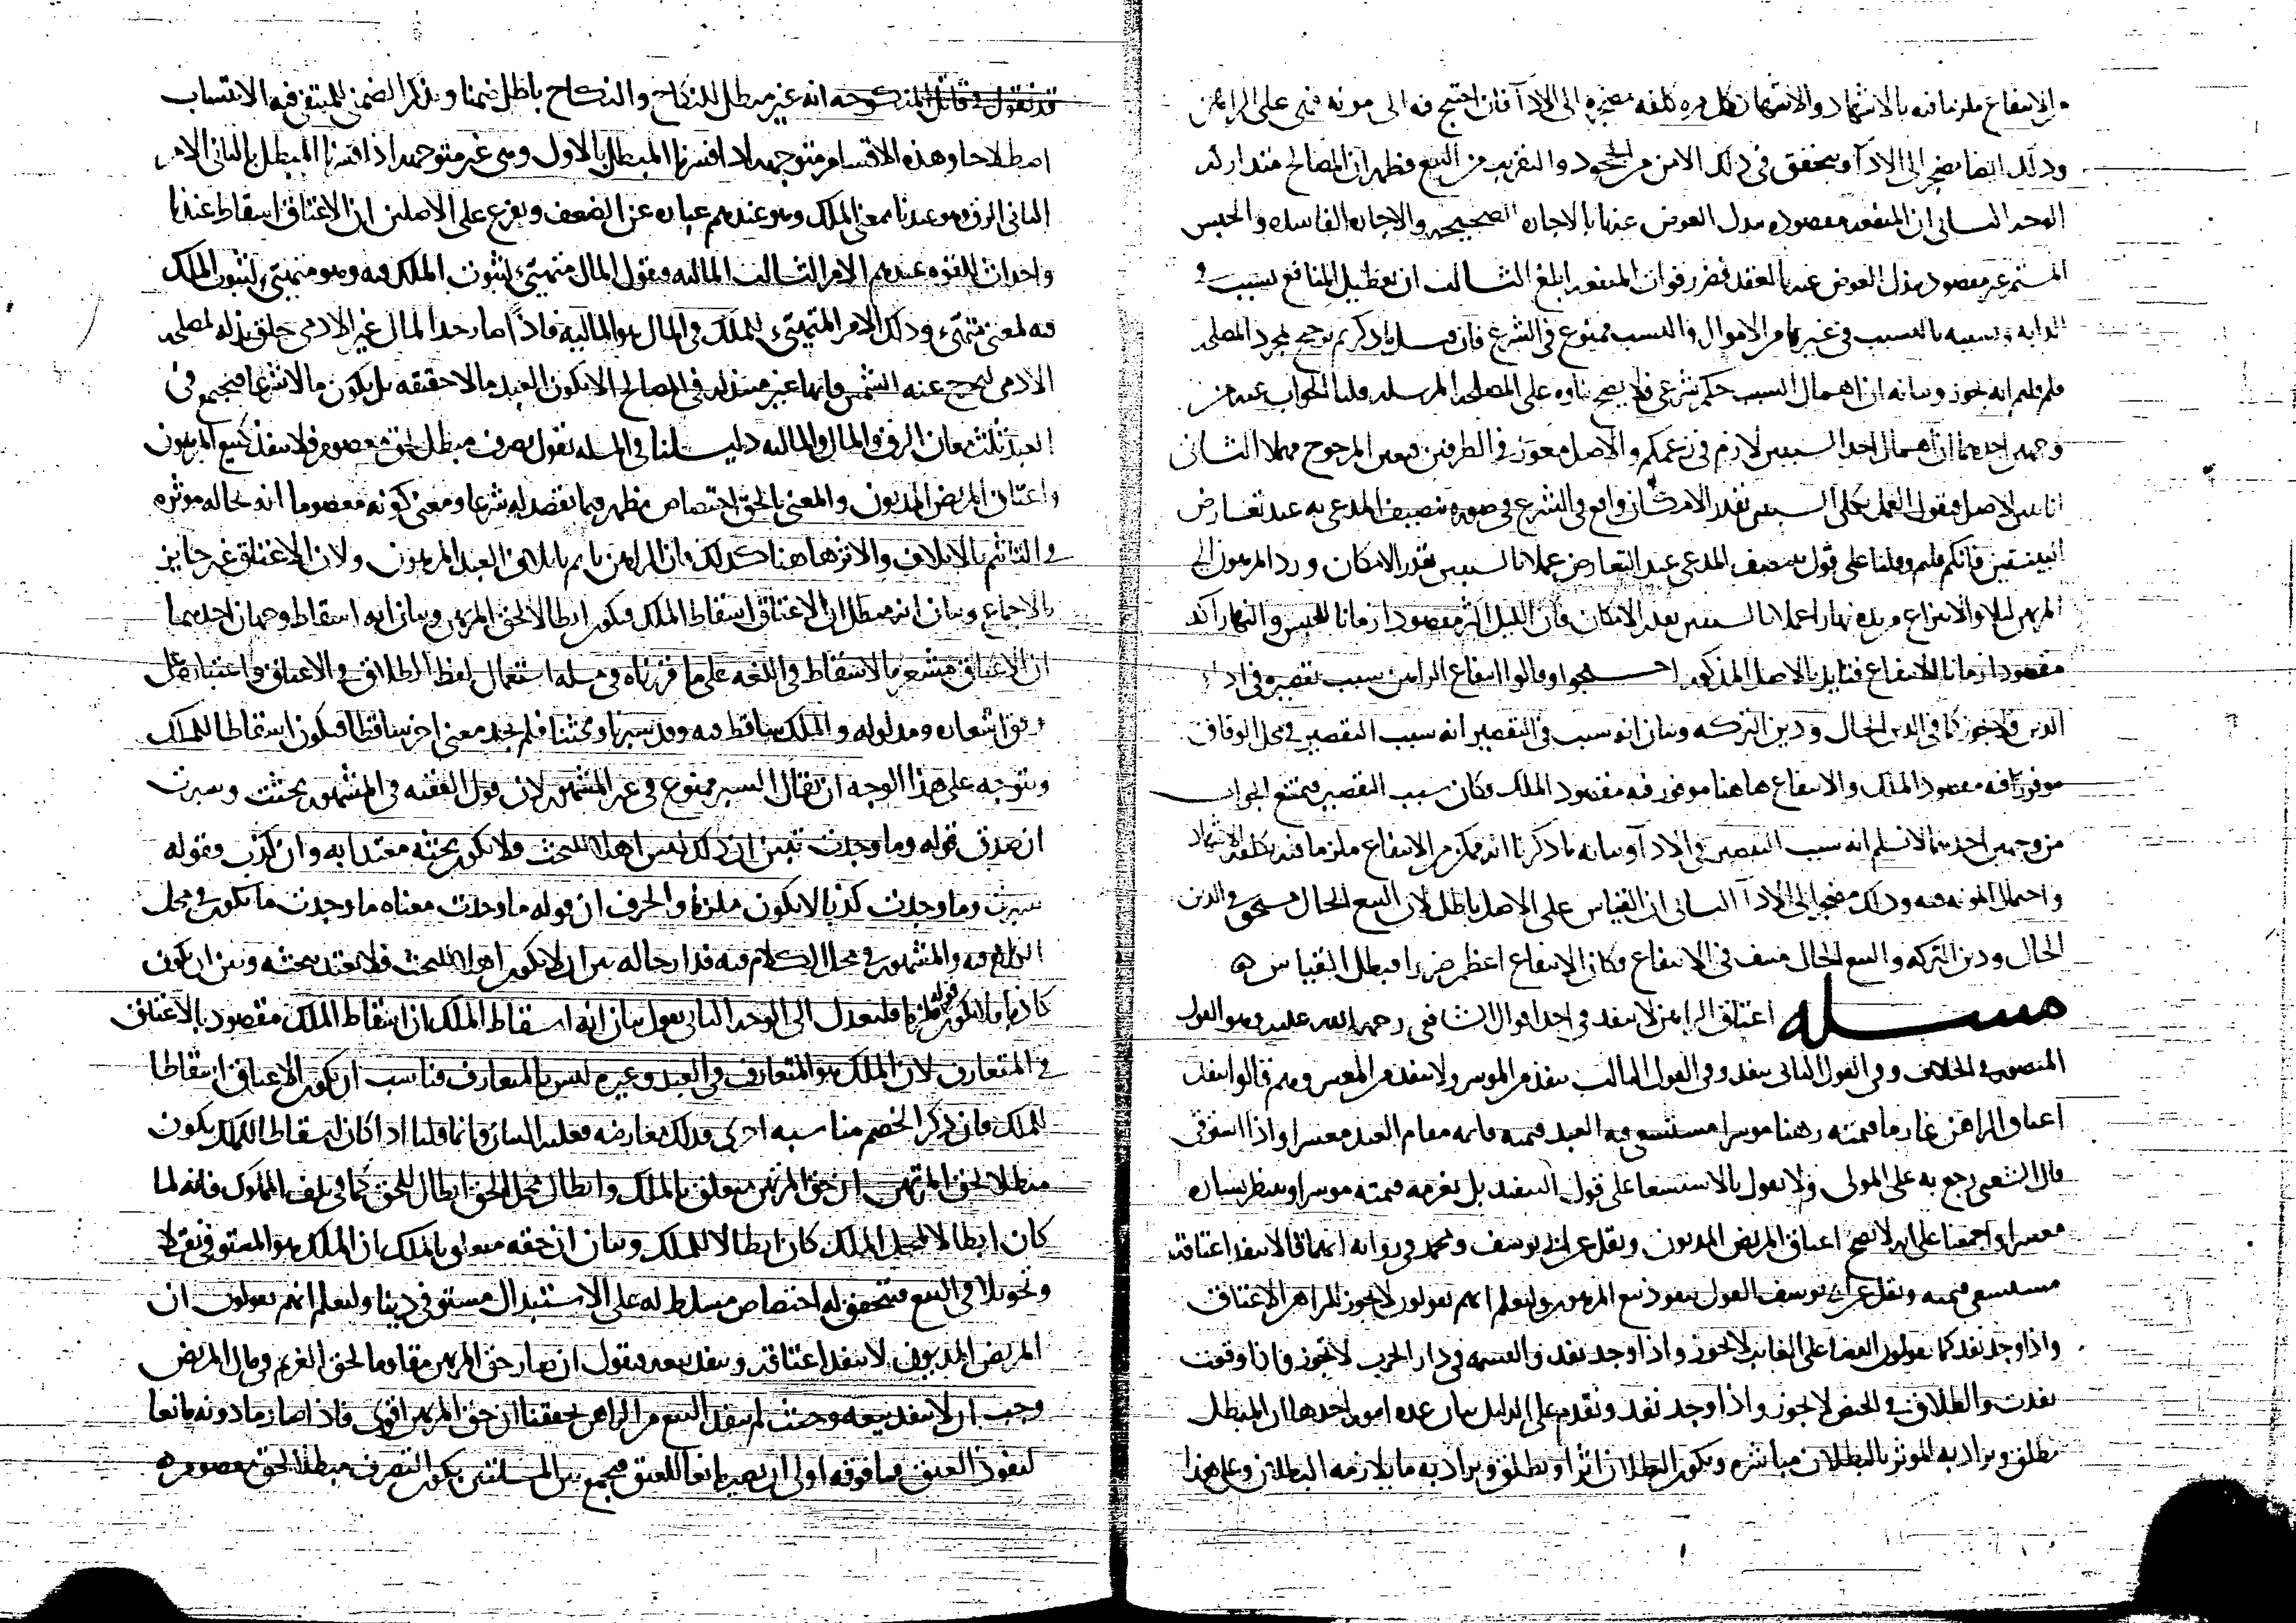 والانتفاع ملزما فيه بالاشهاد والاشهاد كل مرة كلفه مضجرة الى الادآ فان احتيج فيه الى مونه فهي على الراهن
وذلك ايضا مضجر الى الادآ ويتحقق في ذلك الامن من الجحود والتقريب من البيع فظهر ان المصالح متداركة
الوجه الثاني ان المنفعه مقصوده ببذل العوض عنها بالاجاره الصحيحه والاجاره الفاسده والحبس
المستمر غير مقصود ببذل العوض عنه بالعقد فضرر فوات المنفعه ابلغ الثالث ان تعطيل المنافع تسييب في
الدابه وتشبيه بالتسييب في غيرها من الاموال والتسييب ممنوع في الشرع فان قيل ما ذكرتم ترجيح بمجرد المصلحه
فلم قلتم انه يجوز وبيانه ان اهمال السبب حكم شرعي فلا يصح بناوه على المصلحه المرسله قلنا الجواب عنه من
وجهين احدهما ان اهمال احد السببين لازم في زعمكم والاصل معوز في الطرفين فيعين المرجوح مهملا الثاني
انا نبين الاصل فنقول العمل بكلي السببين بقدر الامكان واقع في الشرع في صورة تنصيف المدعى به عند تعارض
البينتين فانكم قلتم وقلنا على قول بتنصيف المدعى عند التعارض عملا بالسببين بقدر الامكان ورد المرهون الى
المرتهن ليلا والانتزاع من يده نهارا عملا بالسببين بقدر الامكان فان الليل اكثر مقصودا زمانا للحبس والنهار آكد
مقصودا زمانا للانتفاع فتايد بالاصل المذكور احتجوا وقالوا انتفاع الراهن سبب تقصيره في اداء
الدين فلا يجوز كما في الدين الحال ودين التركه وبيان انه سبب في التقصير انه سبب التقصير في محل الوفاق
موفور فيه مقصود الملك والانتفاع هاهنا موفور فيه مقصود الملك فكان سبب التقصير فيمتنع الجواب
من وجهين احدهما لا نسلم انه سبب التقصير في الادآ وبيانه ما ذكرنا انه يمكن من الانتفاع ملزما فيه بكلفه الاشهاد
واحتمال المونه فيه وذلك مضجر الى الادآ الثاني ان القياس على الاصل باطل لان البيع الحال مستحق في الدين
الحال ودين التركه والبيع الحال منتف في الانتفاع فكان الانتفاع اعظم ضررا فبطل القياس
مسله اعتاق الراهن لا ينفذ في احد اقوال الشافعي رحمه الله عليه وهو القول
المنصور في الخلاف وفي القول الثاني ينفذ وفي القول الثالث ينفذ من الموسر ولا ينفذ من المعسر وهم قالوا ينفذ
اعتاق الراهن غارما قيمته رهنا موسرا مستسعى فيه العبد قيمته قايمه مقام العبد معسرا واذا استوفى
قال الشعبي رجع به على المولى ولا نقول بالاستسعا على قول التنفيذ بل نغرمه قيمته موسرا وننظر يساره
معسرا واجمعنا على انه لا يصح اعتاق المريض المديون ونقل عن ابي يوسف ومحمد في روايه انهما قالا ينفذ اعتاقه
مستسعى قيمته ونقل عن ابي يوسف القول بنفوذ بيع المرهون وليعلم انهم يقولون لا يجوز للراهن الاعتاق
واذا وجد نفذ كما يقولون القضا على الغائب لا يجوز واذا وجد نفذ والقسمه في دار الحرب لا تجوز فان وقعت
نفذت والطلاق في الحيض لا يجوز واذا وجد نفذ ونقدم على الدليل بيان عده امور احدها ان المبطل
يطلق ويراد به الموثر بالبطلان مباشره ويكون البطلان اثرا ويطلق ويراد به ما يلازمه البطلان وعلى هذا
قد نقول في قاتل المنكوحه انه غير مبطل للنكاح والنكاح باطل ضمنا ويذكر الضمني للمنتفي فيه الانتساب
اصطلاحا وهذه الاقسام متوجهه اذا فسرنا المبطل بالاول وهي غير متوجهه اذا فسرنا المبطل بالثاني الامر
الثاني الرق وهو عندنا بمعنى الملك وهو عندهم عباره عن الضعف ويفرع على الاصلين ان الاعتاق اسقاط عندنا
واحداث للقوه عندهم الامر الثالث الماليه ونقول المال متهيئ لثبوت الملك فيه وهو متهيئ لثبوت الملك
فيه لمعنى متهيئ وذلك الامر المتهيئ للملك في المال هو الماليه فاذا صار حد المال غير الادمي خلق بذله لمصلحه
الادمي ليخرج عنه الشمس فانها غير مبتذله في المصالح الا يكون العبد مالا حقيقه بل يكون مالا شرعا فيجتمع في
العبد ثلث معان الرق والمال والماليه دليلنا في المسله نقول تصرف مبطل لحق معصوم فلا ينفذ كبيع المرهون
واعتاق المريض المديون والمعنى بالحق اختصاص مظهر فيما نقصد له شرعا ومعنى كونه معصوما انه بحاله موثره
في التاثيم بالاتلاف والامر هاهنا كذلك فان الراهن ياثم باتلاف العبد المرهون ولان الاعتاق غير جايز
بالاجماع وبيان انه مبطل ان الاعتاق اسقاط الملك فيكون ابطالا لحق المرتهن وبيان انه اسقاط وجهان احدهما
ان الاعتاق مشعر بالاسقاط في اللغه على ما قررناه في مسله استعمال لفظ الطلاق في الاعتاق واعتباره على
وفق اشعاره ومدلوله والملك ساقط فيه وقد سبرنا وبحثنا فلم نجد معنى اخر ساقطا فيكون اسقاطا للملك
ويتوجه على هذا الوجه ان يقال السبر ممنوع في غير المشهور لان قول الفقيه في المشهور بحثت وسبرت
ان صدق قوله وما وجدت تبين ان ذلك ليس اهلا للبحث ولا يكون بحثه معتدا به وان كذب فقوله
سبرت وما وجدت كذبا لا يكون ملزما والحرف ان قوله ما وجدت معناه ما وجدت ما يكون في محل
النزاع فيه والمشهور في محل الكلام فيه فدار حاله بين ان لا يكون اهلا للبحث فلا يعتد ببحثه وبين ان يكون
كاذبا فلا يكون قوله ملزما فلنعدل الى الوجه الثاني نقول بيان انه اسقاط الملك ان اسقاط الملك مقصود بالاعتاق
في المتعارف لان الملك هو المتعارف في العبد وغيره ليس بالمتعارف فناسب ان يكون الاعتاق اسقاطا
للملك فان ذكر الخصم مناسبه اخرى فذلك معارضه فعليه البيان وانما قلنا اذا كان اسقاطا للملك يكون
مبطلا لحق المرتهن ان حق المرتهن متعلق بالملك وابطال محل الحق ابطال للحق كما في تلف المملوك فانه لما
كان ابطالا لمحل الملك كان ابطالا للملك وبيان ان حقه متعلق بالملك ان الملك هو المستوفى نقلا
وتحويلا في البيع فيتحقق له اختصاص مسلط له على الاستبدال مستوفى دينا وليعلم انهم يقولون ان
المريض المديون لا ينفذ اعتاقه وينفذ بيعه فنقول ان صار حق المرتهن مقاوما لحق الغريم في مال المريض
وجب ان لا ينفذ بيعه وحيث لم ينفذ البيع من الراهن تحققنا ان حق المرتهن اقوى فاذا صار ما دونه مانعا
لنفوذ العتق فما فوقه اولى ان يصير مانعا للعتق فيجمع بين المسلتين بكون التصرف مبطلا لحق معصوم